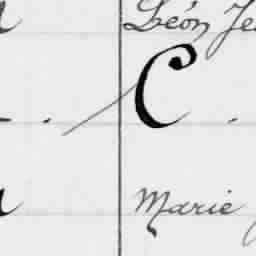 Léon
C
Marie